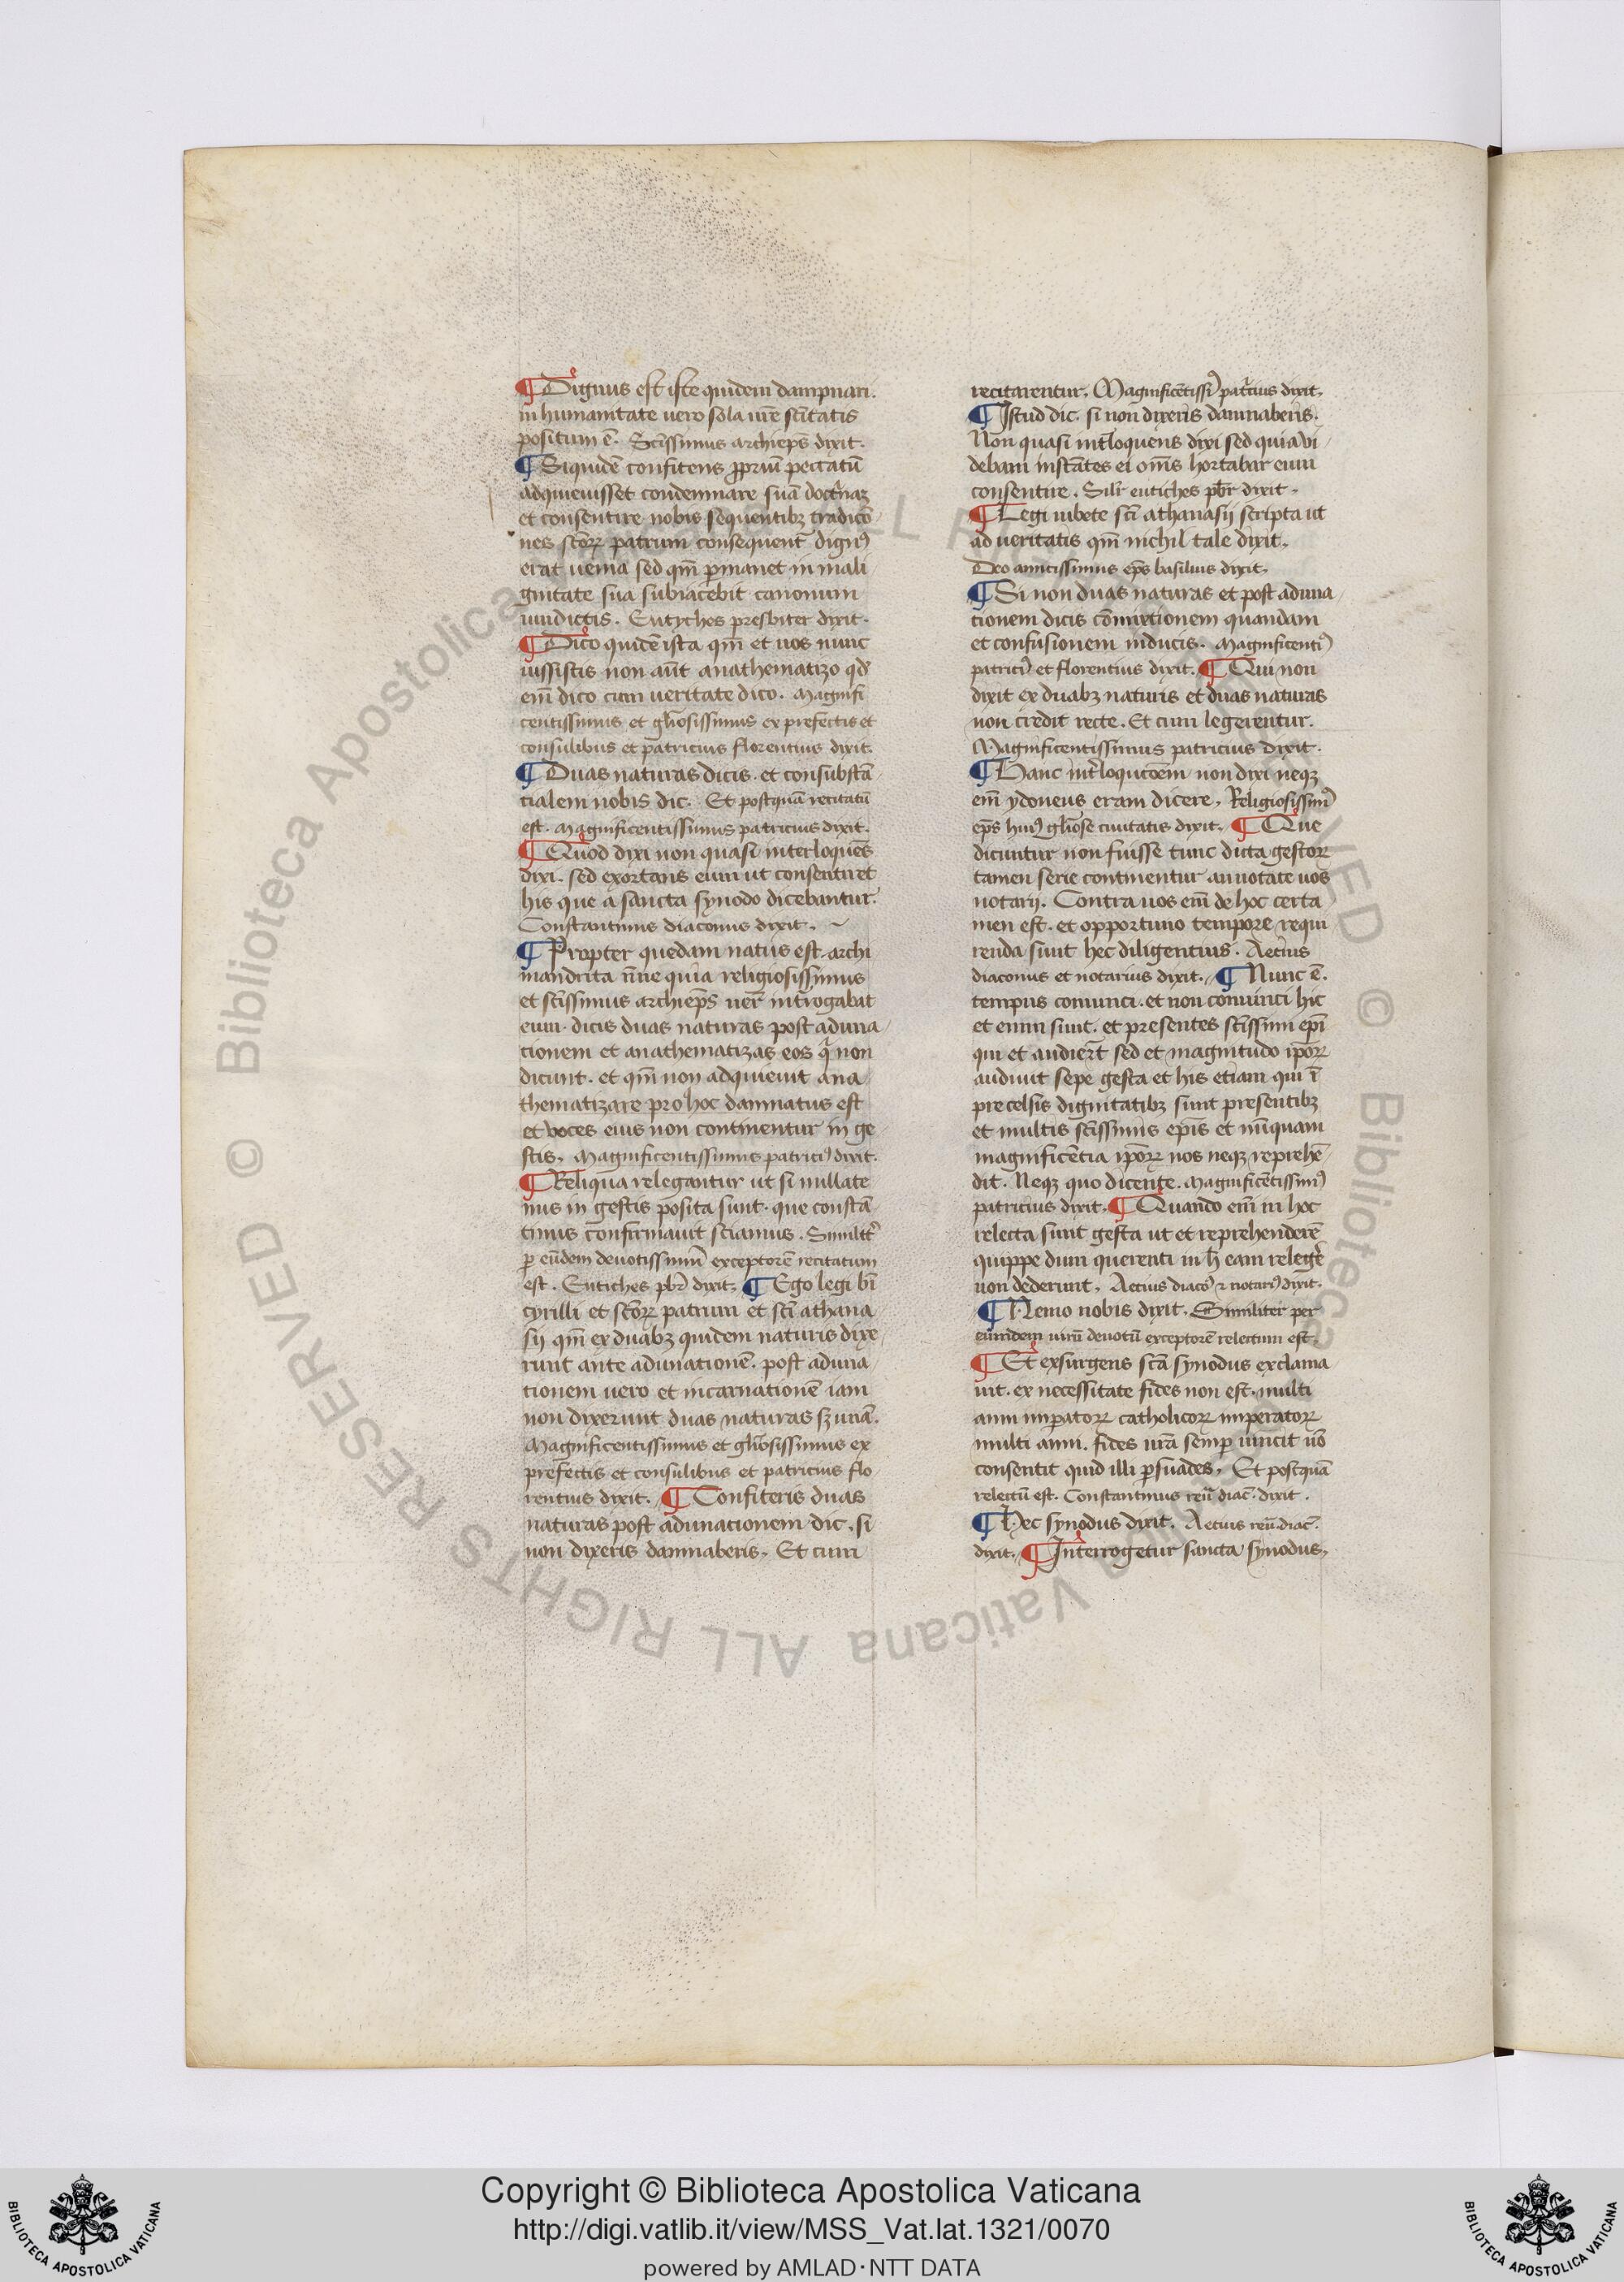 ¶ Dignus est iste quidem dampnari.
in humanitate uero sola ur̄e sc̄itatis
positum ē. Sc̄issimus archiep̄s dixit.
¶ Siquidē confitens ꝓpriū peccatū
adquieuisset condemnare suā doctⁱnaꝫ
et consentire nobis sequentibꝫ tradicō
nes sc̄orꝝ patrum consequent̄ dignꝰ
erat uenia sed qm̄ ꝑmanet in mali
gnitate sua subiacebit canonum
uindictis. Eutyches presbiter dixit.
¶ Dico quidē ista qm̄ et uos nunc
iussistis non aūt anathematizo qd̄
em̄ dico cum ueritate dico. Magnifi
centissimus et gl̄iosissimus ex prefectis et
consulibus et patricius florentius dixit.
¶ Duas naturas dicis. et consubstā
tialem nobis dic. Et postquā recitatū
est. Magnificentissimus patricius dixit.
¶ Quod dixi non quasi interloquēs
dixi. sed exortans eum ut consentiret
his que a sancta synodo dicebantur.
Constantinus diaconus dixit.
¶ Propter quedam natus est. archi
mandrita n̄ne quia religiosissimus
et sc̄issimus archiep̄s uer̄ int̄rogabat
eum. dicis duas naturas post aduna
tionem et anathematizas eos qⁱ non
dicunt. et qm̄ non adquieuit ana
thematizare pro hoc damnatus est
et uoces eius non continentur in ge
stis. Magnificentissimus patriciꝰ dixit.
¶ Reliqua relegantur ut si nullate
nus in gestis posita sunt. que constā
tinus confirmauit sciamus. Similit̄
ꝑ eūdem deuotissimū exceptorē recitatum
est. Eutiches pbr̄ dixit. ¶ Ego legi bī
cyrilli et sc̄orꝝ patrum et sc̄i athana
sij qm̄ ex duabꝫ quidem naturis dixe
runt ante adunationē. post aduna
tionem uero et incarnationē iam
non dixerunt duas naturas sꝫ unā.
Magnificentissimus et gl̄iosissimus ex
prefectis et consulibus et patricius flo
rentius dixit. ¶ Confiteris duas
naturas post adunacionem dic. si
non dixeris damnaberis. Et cum
recitarentur. Magnificētissiꝰ patⁱcius dixit.
¶ Istud dic. si non dixeris damnaberis.
Non quasi int̄loquens dixi sed quia vi
debam instātes ei om̄s hortabar eum
consentire. Silr̄ eutiches pbr̄ dixit.
¶ Legi iubete sc̄i athanasij scripta ut
ad ueritatis qm̄ nichil tale dixit.
Deo amicissimus ep̄s basilius dixit.
¶ Si non duas naturas et post aduna
tionem dicis cōmixtionem quandam
et confusionem inducis. Magnificentiꝰ
patriciꝰ et florentius dixit. ¶ Qui non
dixit ex duabꝫ naturis et duas naturas
non credit recte. Et cum legerentur.
Magnificentissimus patricius dixit.
¶ Hanc int̄loqucōem non dixi neqꝫ
em̄ ydoneus eram dicere. Religiosissimꝰ
ep̄s huiꝰ gl̄iose ciuitatis dixit. ¶ Que
dicuntur non fuisse tunc dicta gestorꝝ
tamen serie continentur annotate uos
notarij. Contra uos em̄ de hoc certa
men est. et opportuno tempore requi
renda sunt hec diligentius. Aetius
diaconus et notarius dixit. ¶ Nunc ē.
tempus conuinci. et non conuinci hic
et enim sunt. et presentes sc̄issimi ep̄i
qui et audier̄t sed et magnitudo ip̄orꝝ
audiuit sepe gesta et his etiam qui ī
precelsis dignitatibꝫ sunt presentibꝫ
et multis sc̄issimis ep̄is et nūquam
magnificētia ip̄orꝝ nos neqꝫ reprehē
dit. Neqꝫ quo dicente. Magnificētissimꝰ
patricius dixit. ¶ Quando em̄ in hoc
relecta sunt gesta ut et reprehenderē
quippe dum querenti in h̄ eam releger̄
non dederunt. Aetius diacoꝰ ⁊ notariꝰ dixit.
¶ Nemo nobis dixit. Similiter per
eumdem uirū deuotū exceptorē relectum est.
¶ Et exsurgens sc̄a synodus exclama
uit. ex necessitate fides non est. multi
anni imꝑatorꝝ catholicorꝝ imperatorꝝ
multi anni. fides ur̄a semꝑ uincit nō
consentit quid illi ꝑsuades. Et postquā
relectū est. Constantinus reu᷒ diac᷒. dixit.
¶ Hec synodus dixit. Aetius reu᷒. diac᷒.
dixit. ¶ Interrogetur sancta synodus.
© Biblioteca Apostolica Vaticana ALL RIGHTS RESERVED
Copyright © Biblioteca Apostolica Vaticana
http://digi.vatlib.it/view/MSS_Vat.lat.1321/0070
powered by AMLAD·NTT DATA
BIBLIOTECA APOSTOLICA VATICANA
BIBLIOTECA APOSTOLICA VATICANA